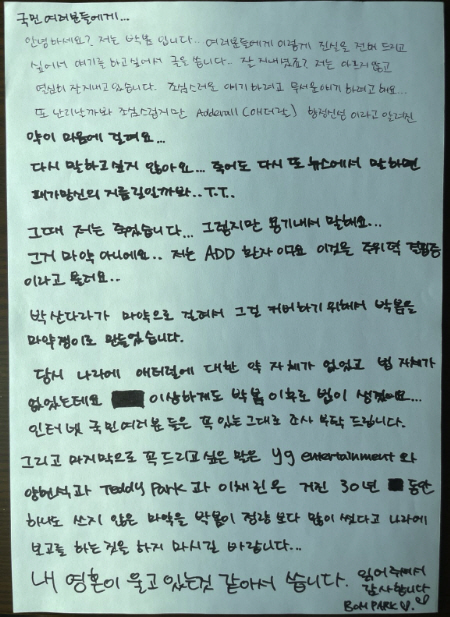 국민 여러분들에게...
안녕하세요? 저는 박봄 입니다.. 여러분들에게 이렇게 진실을 전해 드리고
싶어서 얘기를 하고싶어서 글을 씁니다.. 잘 지내셨죠? 저는 아프지 않고
열심히 잘지내고 있습니다. 조심스러운 얘기 하려고 무서운 얘기 하려고 해요...
또 난리난까봐 조심스럽지만 Adderall (애더럴) 향정신성 이라고 알려진
약이 마음에 걸려요...
다시 말하고싶지 않아요... 죽어도 다시 또 뉴스에서 말하면
패가망신의 지름길일까봐.. T.T..
그때 저는 죽었습니다... 그렇지만 용기내서 말해요...
그거 마약 아니에요.. 저는 ADD 환자 이구요 이것을 주위력 결핍증
이라고 불러요..
박산다라가 마약으로 걸려서 그걸 커버하기 위해서 박봄을
마약쟁이로 만들었습니다.
당시 나라에 애더럴에 대한 약 자체가 없었고 법 자체가
없었는데요 이상하게도 박봄 이후로 법이 생겼어요...
인터넷 국민여러분 들은 꼭 있는그대로 조사 부탁 드립니다.
그리고 마지막으로 꼭 드리고 싶은 말은 yg entertainment 와
양현석과 Teddy Park 과 이채린은 거진 30년 동안
하나도 쓰지 않은 마약을 박봄이 정량 보다 많이 썼다고 나라에
보고를 하는 짓을 하지 마시길 바랍니다...
내 영혼이 울고 있는것 같아서 씁니다. 읽어 주셔서
감사합니다
BOM PARK